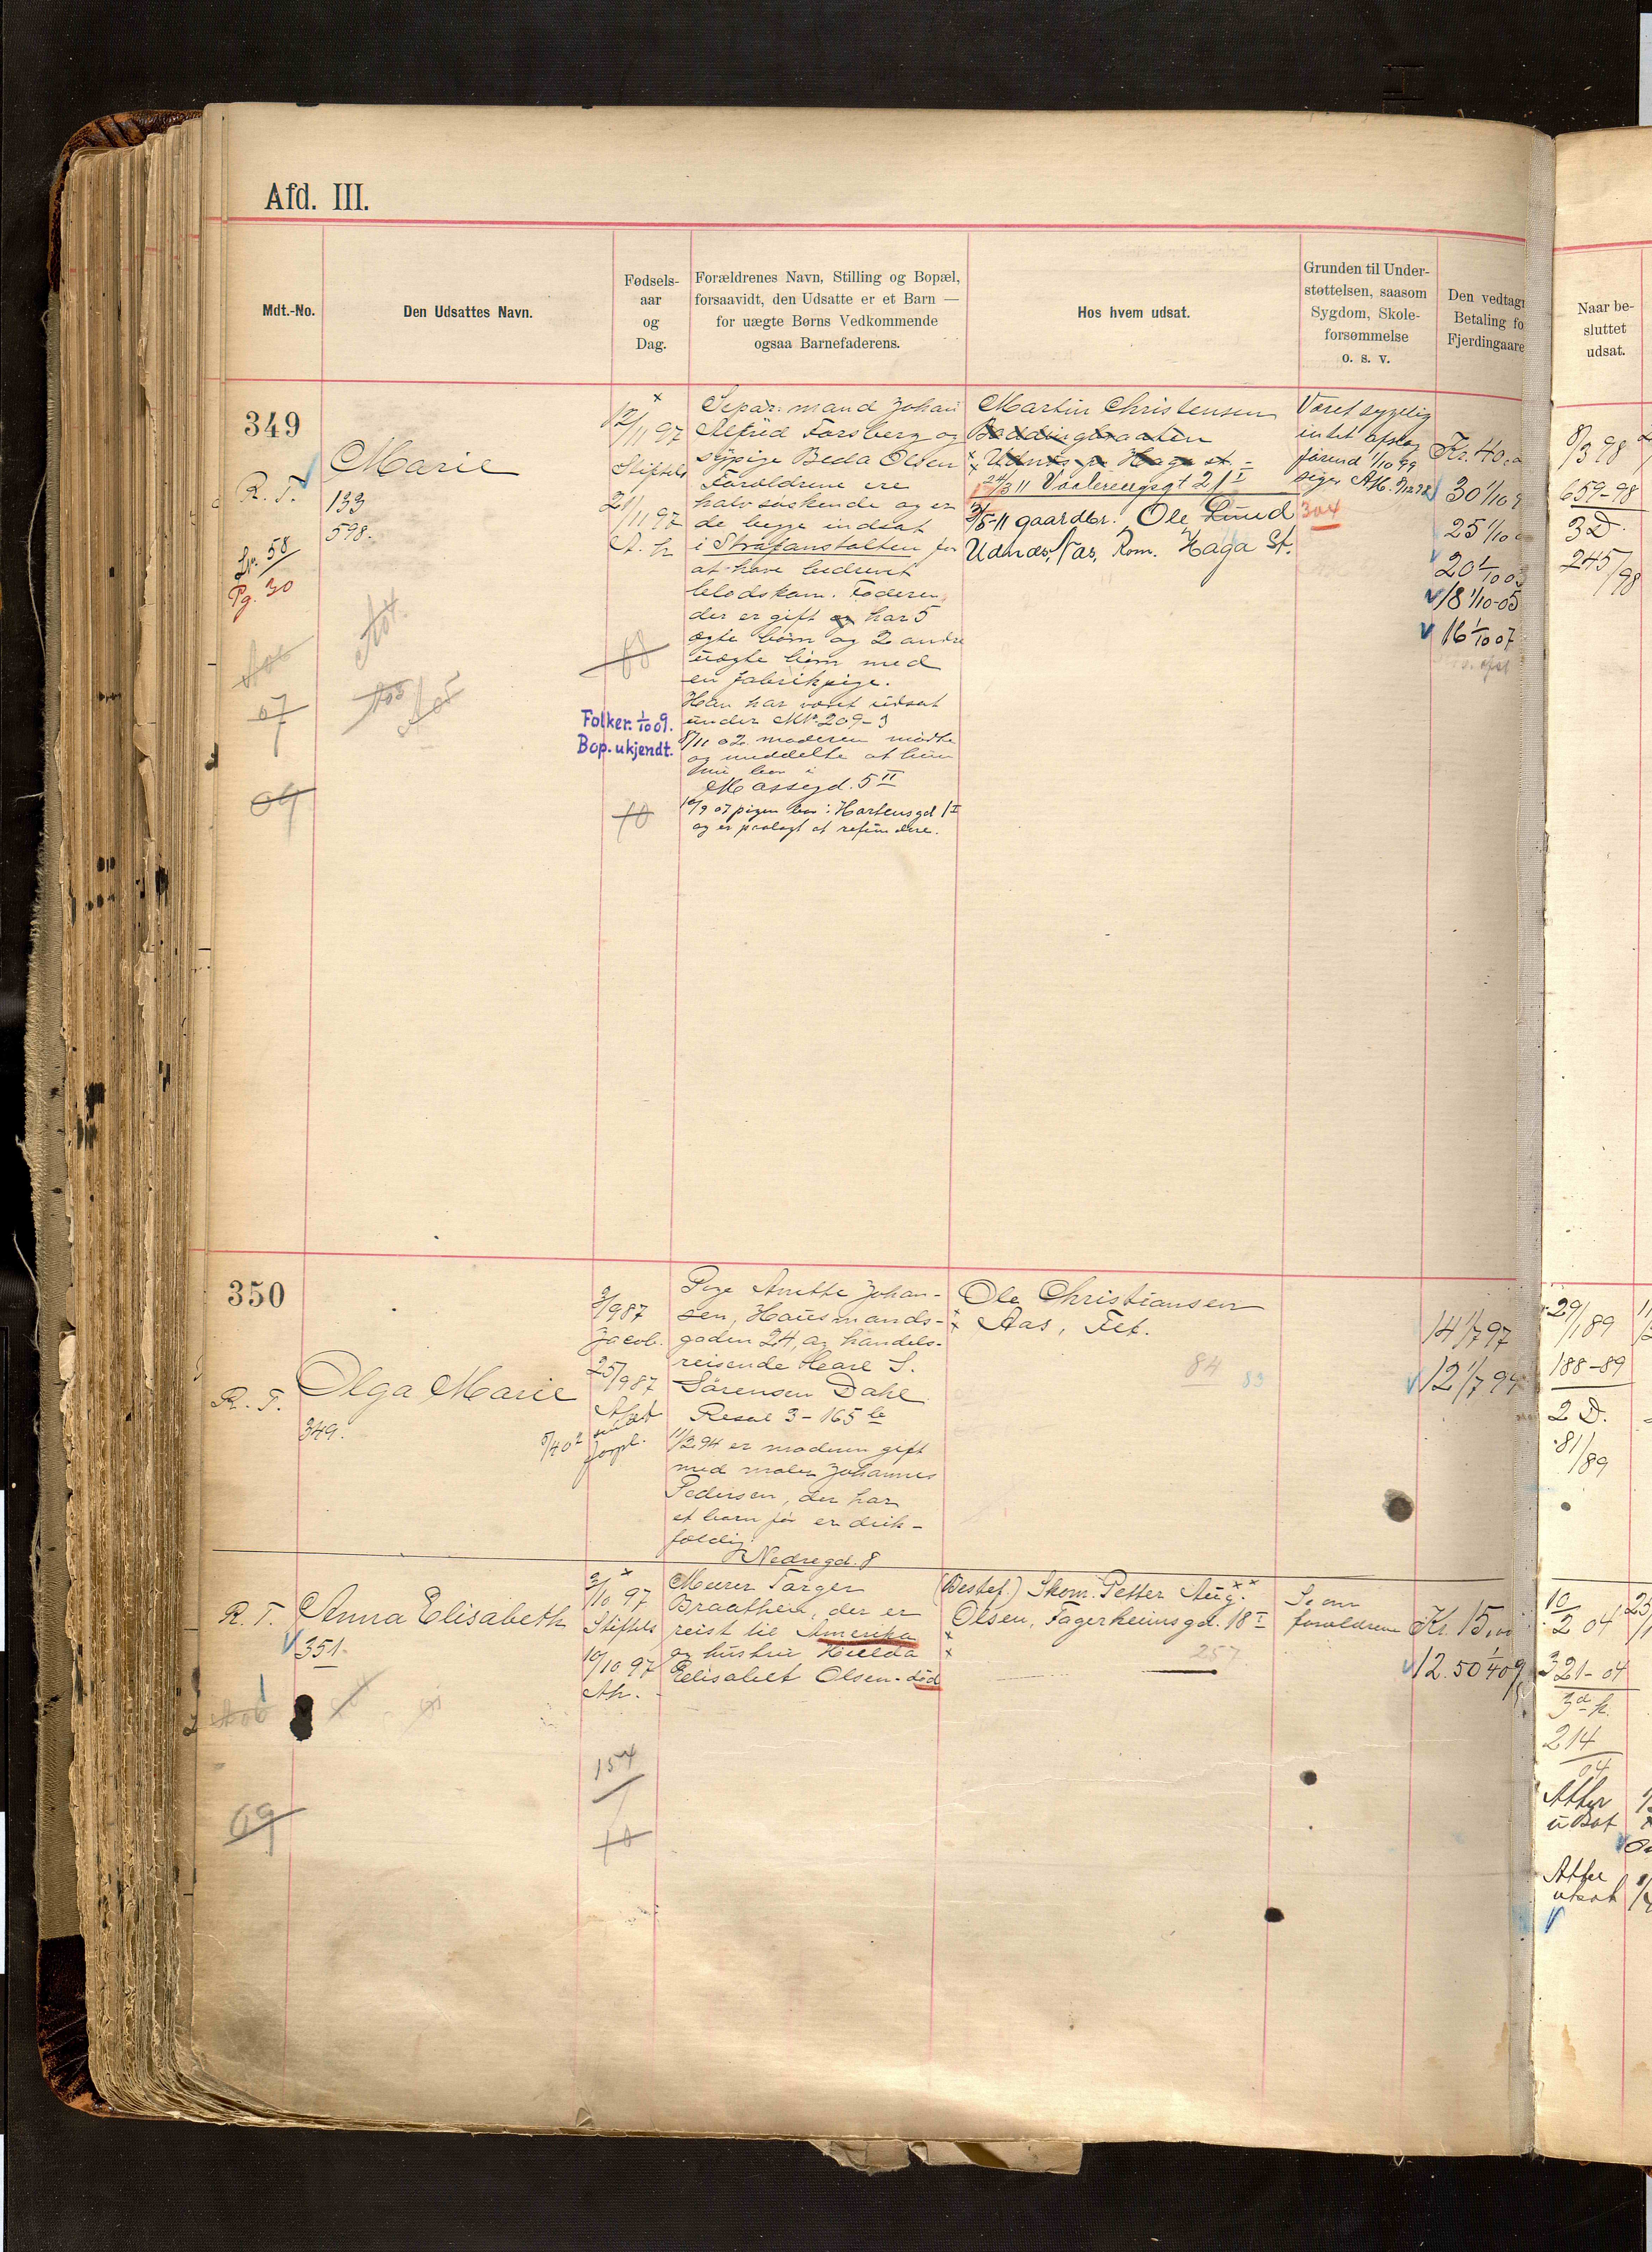 Afd. III.
Mdt.-No.
Den Udsattes Navn.
Fødsels-
aar
og
Dag.
Forældrenes Navn, Stilling og Bopæl,
forsaavidt, den Udsatte er et Barn —
for uægte Børns Vedkommende
ogsaa Barnefaderens.
Hos hvem udsat.
Grunden til Under-
støttelsen, saasom
Sygdom, Skole-
forsømmelse
o. s. v.
Den vedtag
Betaling fo
Fjerdingaare
Naar be-
sluttet
udsat.
349
R. T.
58
Pg. 30
07
09
Marie
133
598.
12/11 97
Stiftels
21/11 97
A. h
Folker. 1/10 09.
Bop. ukjendt.
10
Separ. mand Johan
Alfred Forsberg og
sypige Beda Olsen
Forældrene ere
halvsøskende og er
de begge indsat
i Strafanstalten for
at have bedrevet
blodskam. Faderen
der er gift og har 5
ægte børn og 2 andre
uægte børn med
en fabrikpige.
Han har været udsat
under M.No 209-3
8/11 02 moderen mødte
og meddelte at hun
nu bor i
Mossegd. 5 II
10/9 07 pigen bor i Hortensgd 1 I
og er paalagt at refundere.
Martin Christensen
Udnæs pr Haga st.
24/3 11 Vaalerengsgt 21 I
3/5-11 gaardbr. Ole Lund
Udnæs, Nas, Rom. Haga St.
Været sygelig
intet afslag
førend 1/10 99
siger
304
Kr. 40
30 1/10 9
25 1/10
20 1/10 03
18 1/10-05
16 1/10 07
8/3 98
659-98
3 D.
245/98
350
R. T.
Olga Marie
349.
3/9 87
Jacob.
25/9 87
forpl.
Pige Anette Johan-
sen, Hausmands-
gaden 24, og handels-
reisende Karl S.
Sörensen Dahl
Resol 3-165 b
11/2 94 er moderen gift
med maler Johannes
Pedersen, der har
et barn før er drik-
fældig.
Nedregd. 8
Ole Christiansen
Aas, Fet.
84
83
14 1/7 97
12 1/7 99
29/1 89
188-89
2 D.
81/89
R. T.
Anna Elisabeth
351.
69
3/10 97
Stiftels
10/10 97
Ah.
154
10
Murer Torger
Braathen, der er
reist til Amerika
og hustru Hulda
Elisabet Olsen - död
(Bestef.) Skom. Petter Aug.
Olsen, Fagerheimsgd. 18 I
257
Se om
forældrene
Kr. 15.00
12.50 1/4 09
10/2 04
321-04
3 d k.
214
04
Atter
udsat
Atter
utsat